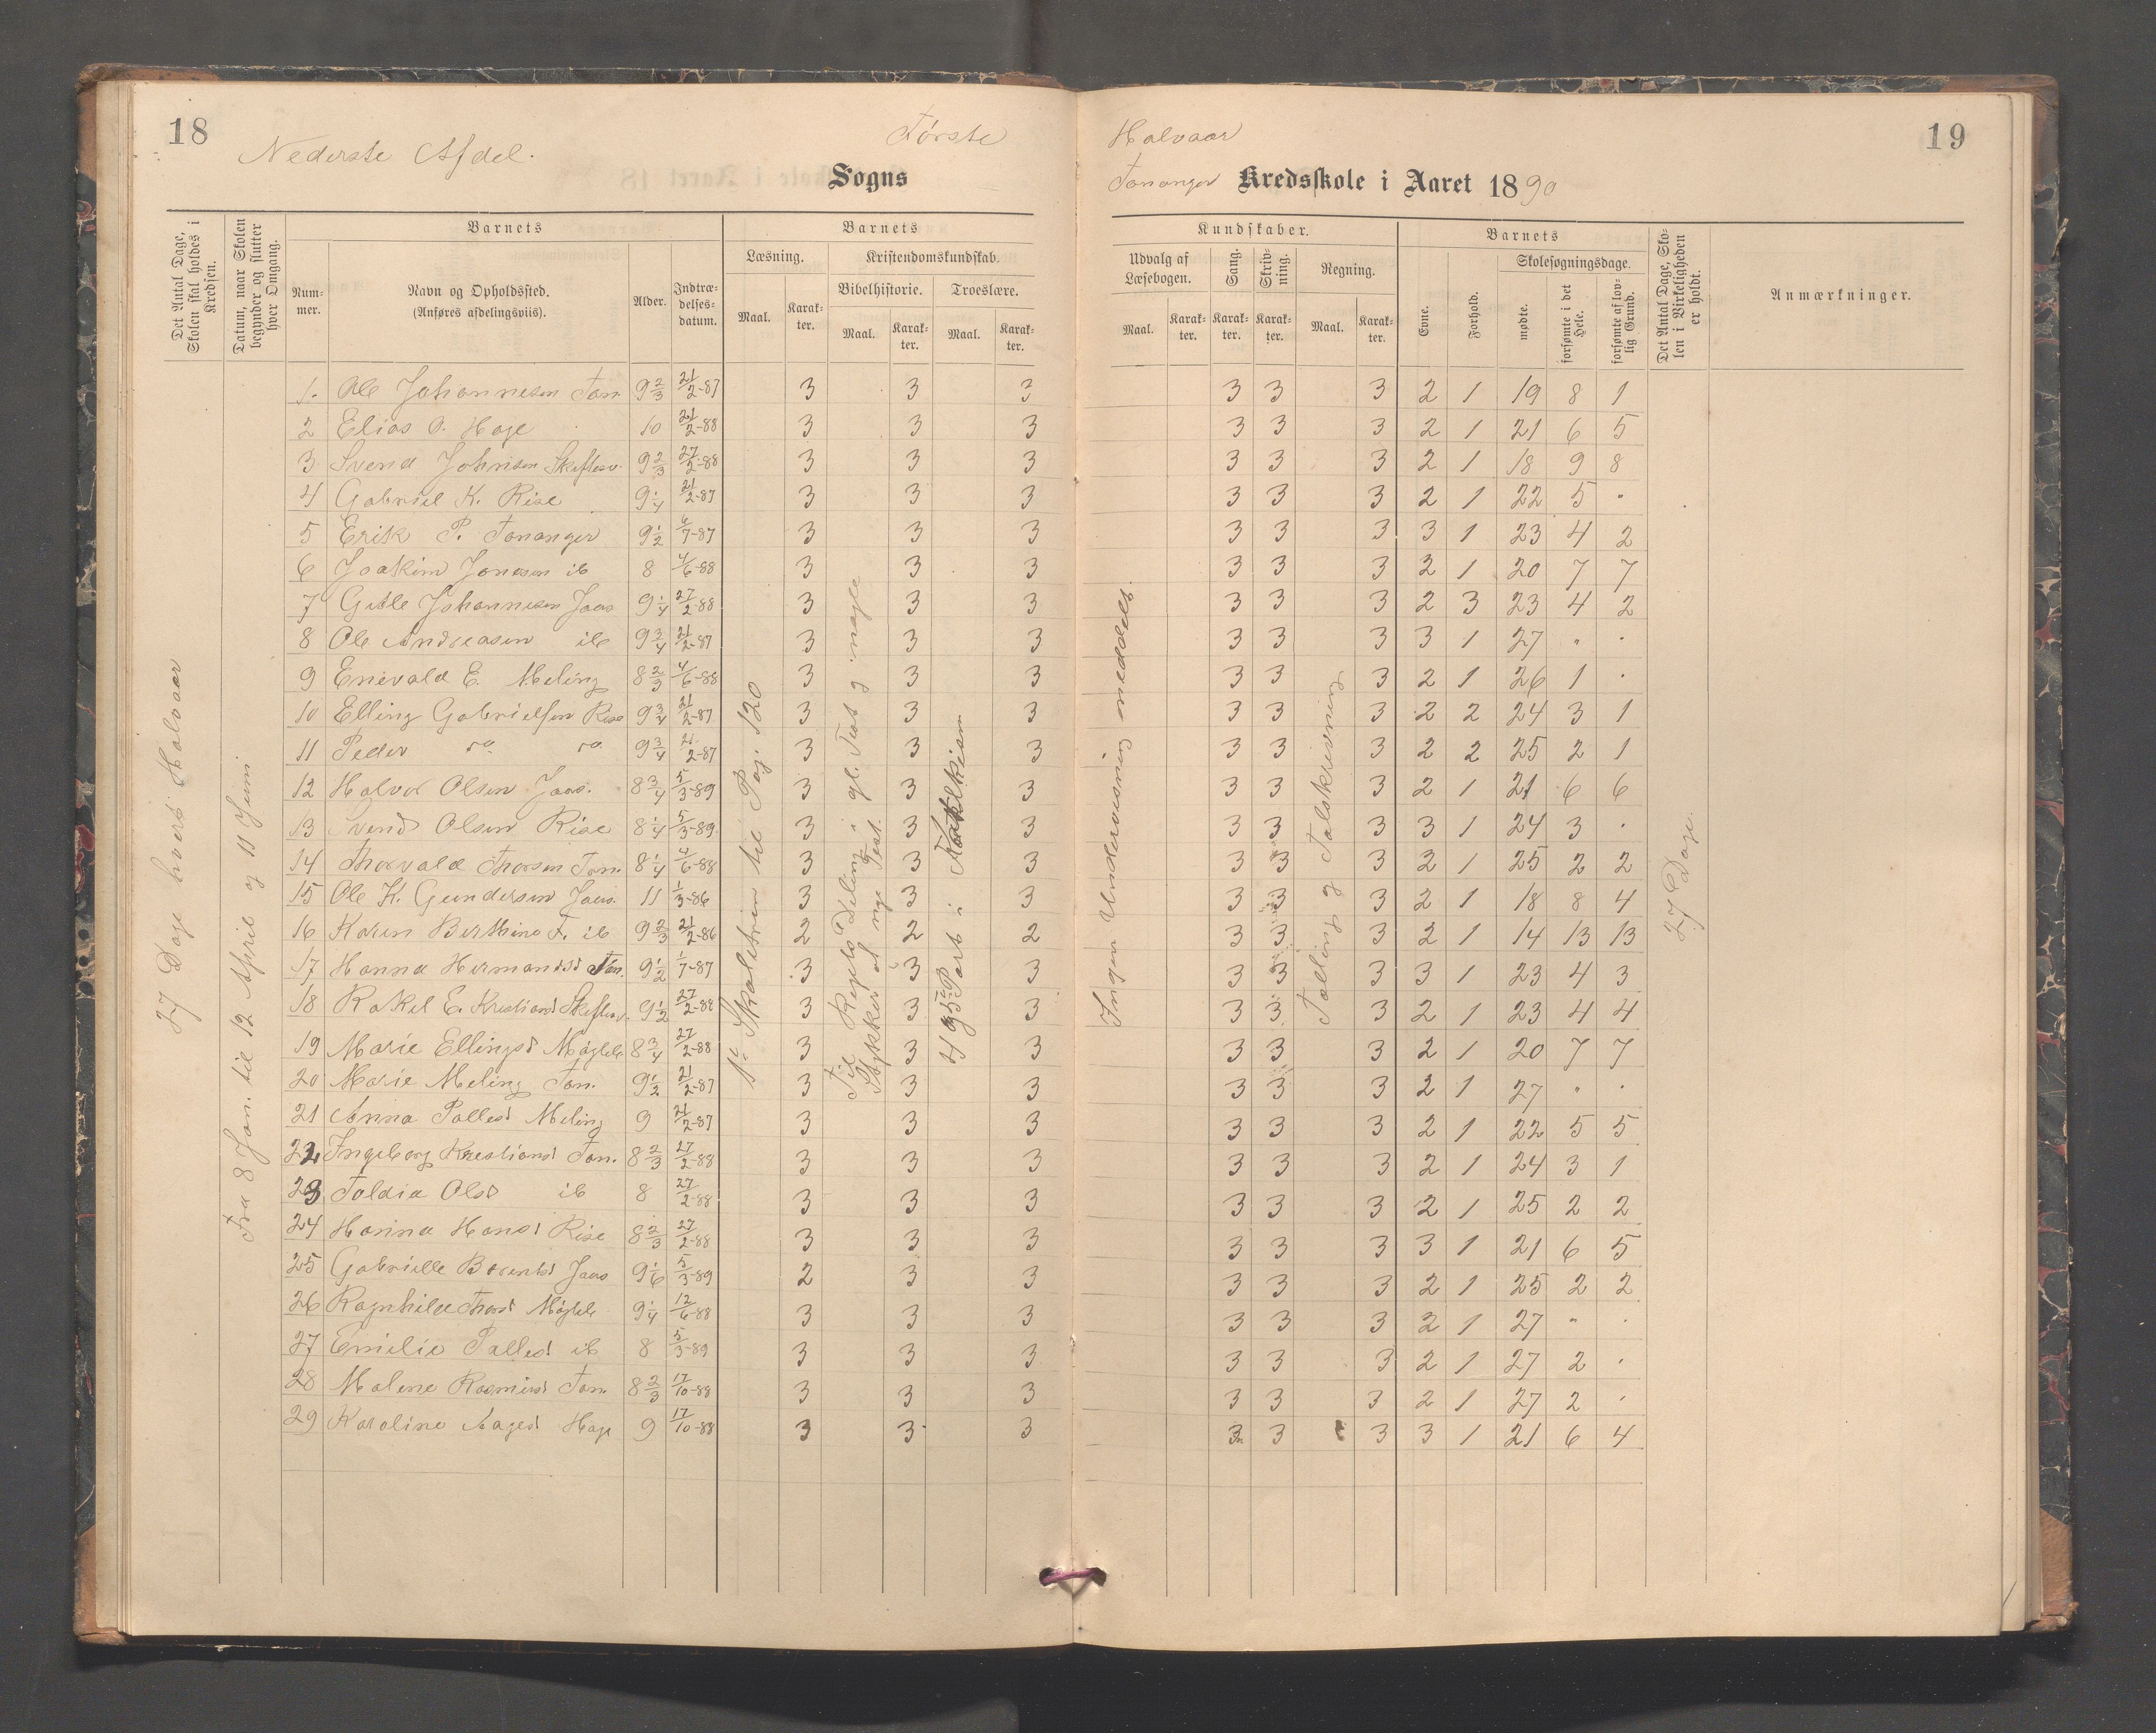 18
Nederste Afdel.
Første
Sogns
Halvaar
19
Tananger Kredsskole i Aaret 1890
Det Antal Dage, Skolen skal holdes i Kredsen.
Datum, naar Skolen begynder og slutter hver Omgang.
Barnets
Num-mer.
Navn og Opholdssted.
(Anføres afdelingsviis).
Alder.
Indtræ-delses-datum.
Barnets
Læsning.
Maal.
Karak-ter.
Kristendomskundskab.
Bibelhistorie.
Maal.
Karak-ter.
Troeslære.
Maal.
Karak-ter.
Kundskaber.
Udvalg af Læsebogen.
Maal.
Karak-ter.
Sang.
Karak-ter.
Skriv-ning.
Karak-ter.
Regning.
Maal.
Karak-ter.
Barnets
Evne.
Forhold.
Skolesøgningsdage.
mødte.
forsømte i det Hele.
forsømte af lov-lig Grund.
Det Antal Dage, Sko-len i Virkeligheden er holdt.
Anmærkninger.
27 Dage hvert Halvaar
Fra 8 Jan. til 12 April og 11 Juni
Skaletrin til Pag. 120
Ingen Undervisning meddelt.
Tælling og Talskrivning
27 Dage.
1. Ole Johannesen Tan. 9 2/3 21/2-87 3 3 3 3 3 3 2 1 19 8 1
2 Elias O. Hage 10 21/2-88 3 3 3 3 3 3 2 1 21 6 5
3 Svend Johnsen 9 2/3 27/2-88 3 3 3 3 3 3 2 1 18 9 8
4 Gabriel K. Rise 9 1/4 21/2-87 3 3 3 3 3 3 2 1 22 5 "
5 Erik P. Tananger 9 1/2 6/7-87 3 3 3 3 3 3 3 1 23 4 2
6 Joakim Jonasen ib 8 4/6-88 3 3 3 3 3 3 2 1 20 7 7
7 Gitle Johannesen Jaas 9 1/4 27/2-88 3 3 3 3 3 3 2 3 23 4 2
8 Ole Andreasen ib 9 3/4 21/2-87 3 3 3 3 3 3 3 1 27 " "
9 Enevald E. Meling 8 2/3 4/6-88 3 3 3 3 3 3 2 1 26 1 "
10 Elling Gabrielsen Rise 9 3/4 21/2-87 3 3 3 3 3 3 2 2 24 3 1
11 Peder do do 9 3/4 21/2-87 3 3 3 3 3 3 2 2 25 2 1
12 Halvor Olsen Jaas. 8 3/4 5/3-89 3 3 3 3 3 3 2 1 21 6 6
13 Svend Olsen Rise 8 1/4 5/3-89 3 3 3 3 3 3 3 1 24 3 "
14 Thorvald Thorsen Tan. 8 1/4 4/6-88 3 3 3 3 3 3 2 1 25 2 2
15 Ole K. Gundersen Jaas. 11 1/3-86 3 3 3 3 3 3 2 1 18 8 4
16 Karen Berthine F. ib 9 2/3 21/2-86 2 2 2 3 3 3 2 1 14 13 13
17 Hanna Hermansd Tan. 9 1/2 1/7-87 3 3 3 3 3 3 3 1 23 4 3
18 Rakel E. Kristiansd 9 1/2 27/2-88 3 3 3 3 3 3 2 1 23 4 4
19 Marie Ellingsd 8 3/4 27/2-88 3 3 3 3 3 3 2 1 20 7 7
20 Marie Meling Tan. 9 1/2 21/2-87 3 3 3 3 3 3 2 1 27 " "
21 Anna Pallesd Meling 9 21/2-87 3 3 3 3 3 3 2 1 22 5 5
22 Ingeborg Kristiansd Tan. 8 2/3 27/2-88 3 3 3 3 3 3 2 1 24 3 1
23 Taldia Olsd ib 8 27/2-88 3 3 3 3 3 3 2 1 25 2 2
24 Hanna Hansd Rise 8 2/3 27/2-88 3 3 3 3 3 3 3 1 21 6 5
25 Gabrielle Berentsd Jaas 9 1/6 5/3-89 2 3 3 3 3 3 2 1 25 2 2
26 Ragnhild Thorsd 9 1/4 12/6-88 3 3 3 3 3 3 2 1 27 " "
27 Emilie Pallesd ib 8 5/3-89 3 3 3 3 3 3 2 1 27 2 "
28 Malene Rasmusd Tan. 8 2/3 17/10-88 3 3 3 3 3 3 2 1 27 2 "
29 Karoline Aagesd Hage 9 17/10-88 3 3 3 3 3 3 3 1 21 6 4